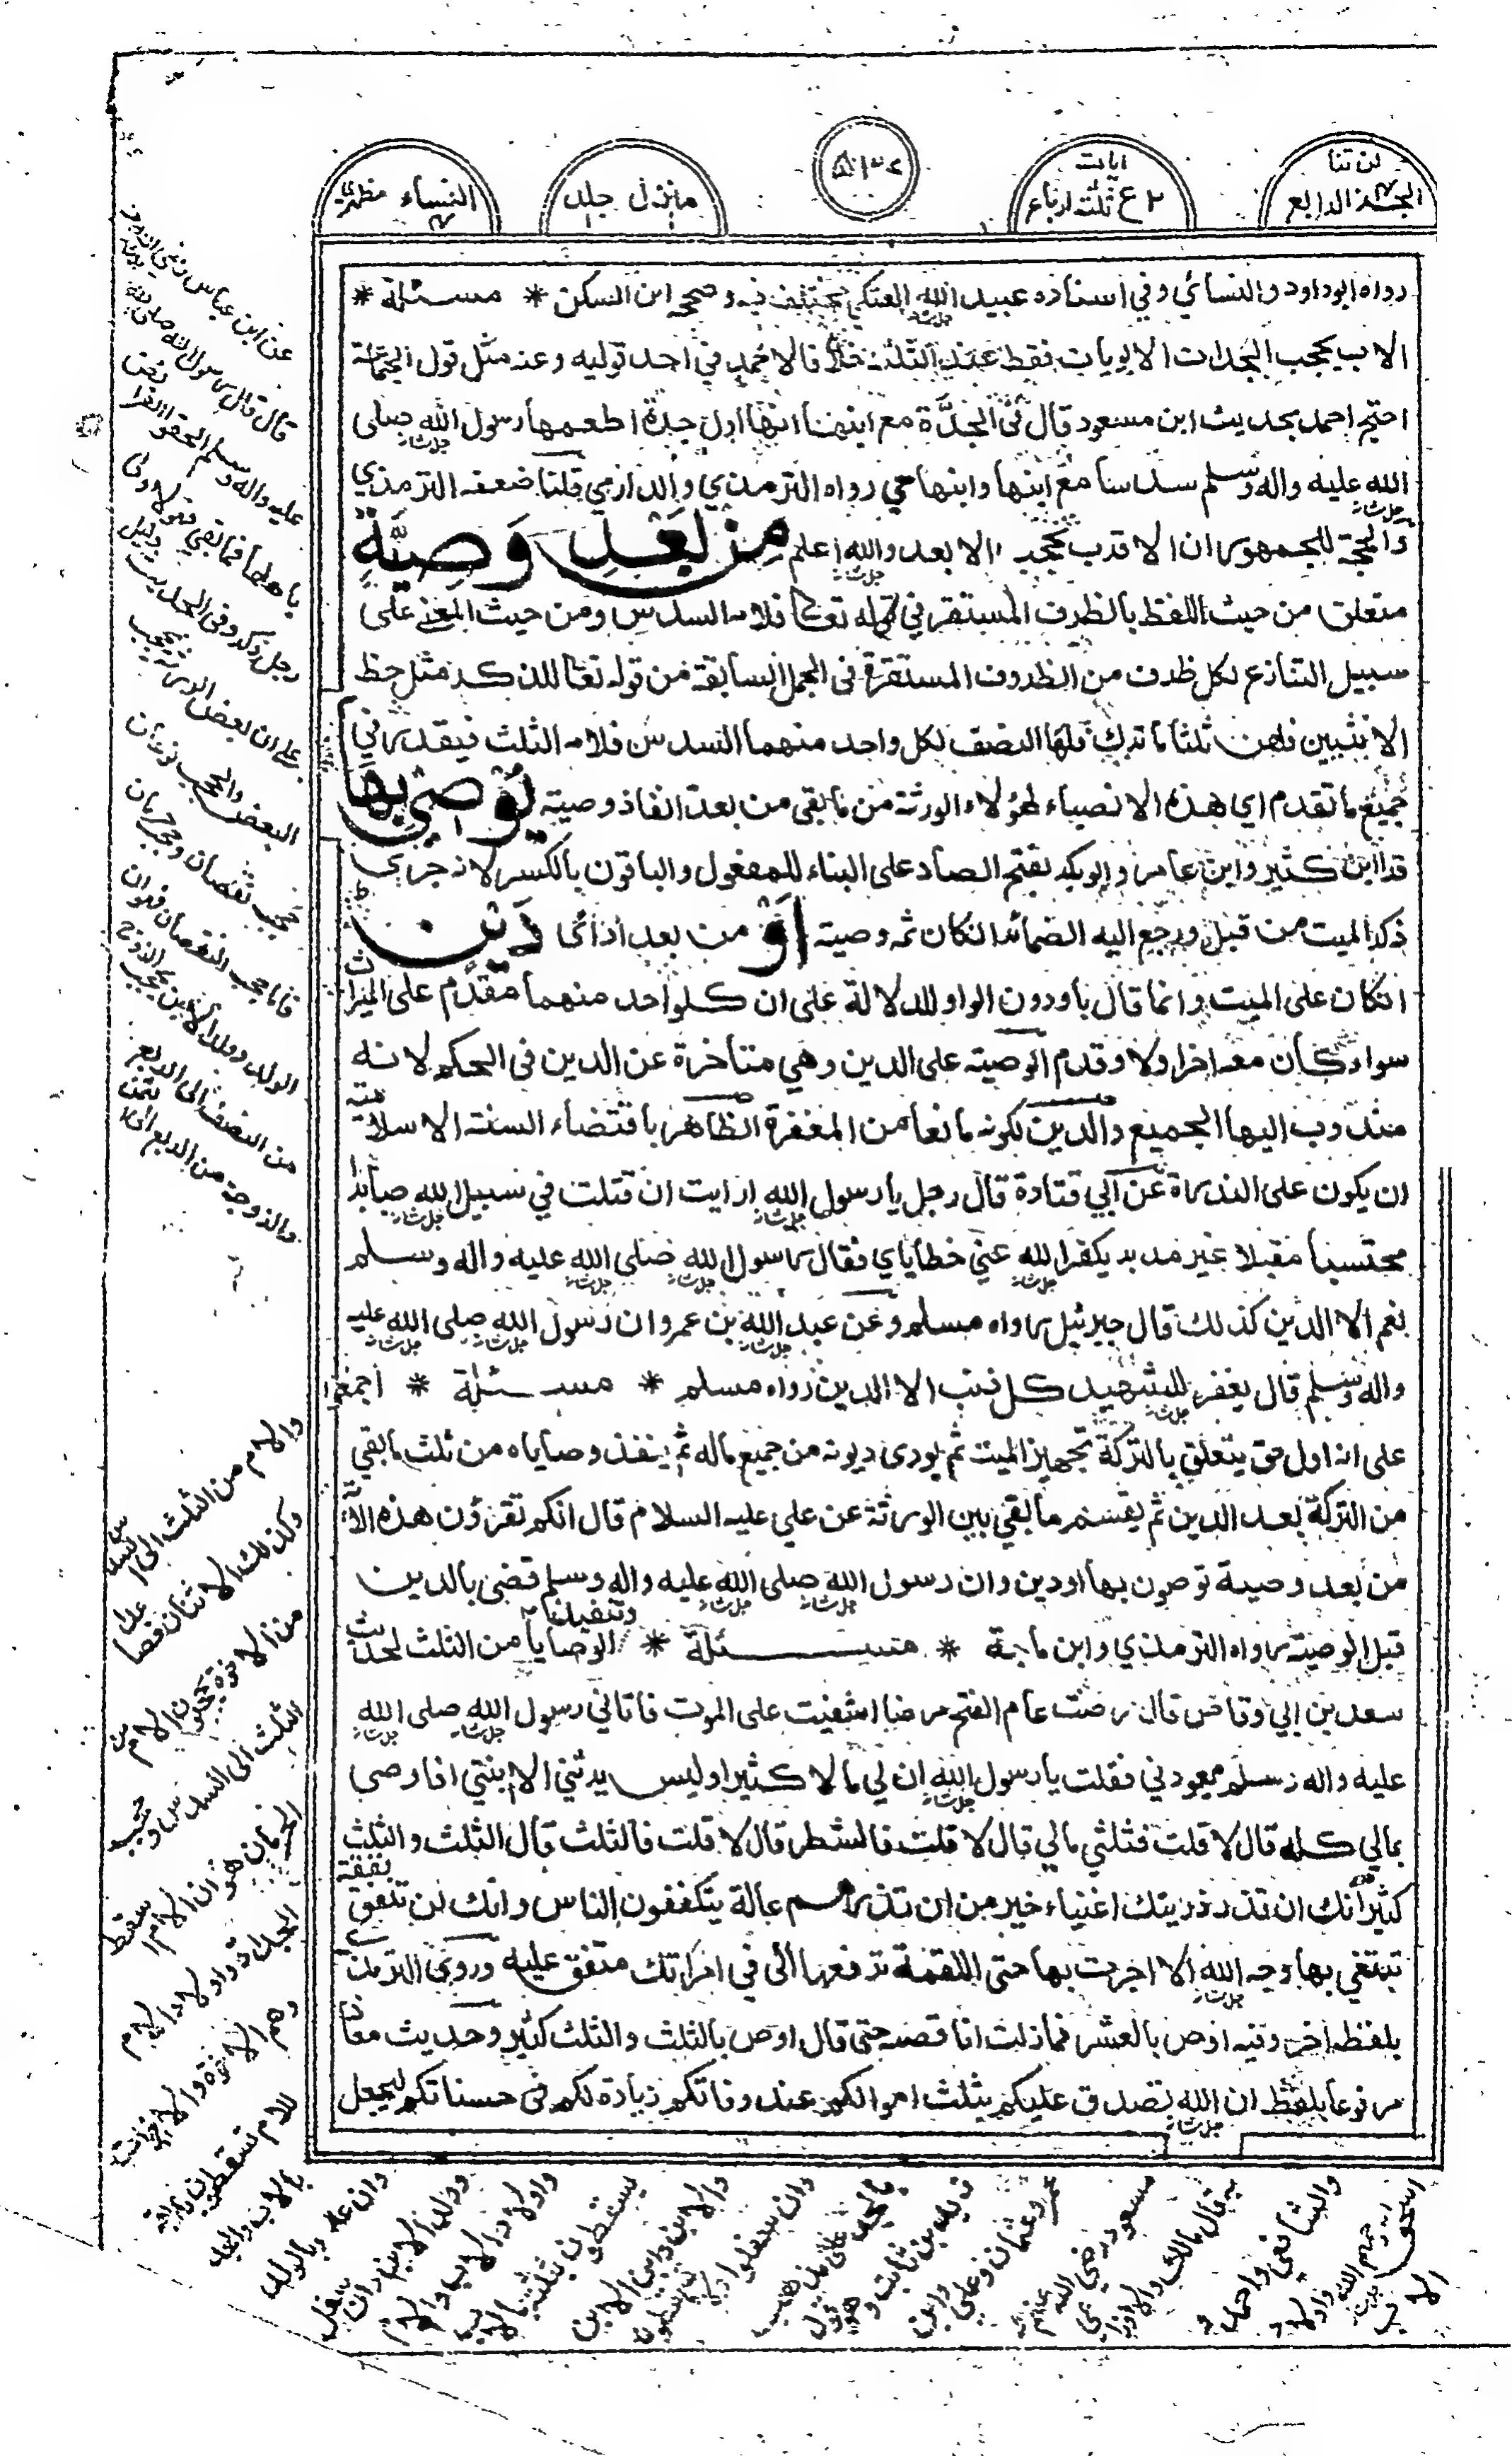 لن تنا
الجزء الرابع
ايات
٢ ع ثلثة ارباع
منزل جلد
النساء مظهري
رواه ابوداود والنسائي وفي اسناده عبيد الله العتكي مختلف فيه وصححه ابن السكن * مسئلة *
الاب يحجب الجدات الابويات فقط عند الثلثة خلافا لاحمد في احد قوليه وعنه مثل قول الجماعة
احتج احمد بحديث ابن مسعود قال في الجدة مع ابنها انها اول جدة اطعمها رسول الله صلى
الله عليه واله وسلم سدسا مع ابنها وابنها حي رواه الترمذي والدارمي قلنا ضعفه الترمذي
والحجة للجمهور ان الاقرب يحجب الابعد والله اعلم من بعد وصية
متعلق من حيث اللفظ بالظرف المستقر في قوله تعالى فلامه السدس ومن حيث المعنى على
سبيل التنازع لكل ظرف من الظروف المستقرة في الجمل السابقة من قوله تعالى للذكر مثل حظ
الانثيين فلهن ثلثا ما ترك فلها النصف لكل واحد منهما السدس فلامه الثلث فيقدر في
جميع ما تقدم اي هذه الانصباء لهؤلاء الورثة من ما بقى من بعد انفاذ وصية يوصى بها
قرا ابن كثير وابن عامر وابوبكر بفتح الصاد على البناء للمفعول والباقون بالكسر لانه جرى
ذكر الميت من قبل ورجع اليه الضمائر انكان ثمه وصية او من بعد اداء دين
انكان على الميت وانما قال باو دون الواو للدلالة على ان كلواحد منهما مقدم على الميراث
سواء كان معه اخر اولا وقدم الوصية على الدين وهي متاخرة عن الدين في الحكم لانه
مندوب اليها الجميع والدين لكونه مانعا من المغفرة الظاهر باقتضاء السنة الاسلامية
ان يكون على الندرة عن ابي قتادة قال رجل يا رسول الله ارايت ان قتلت في سبيل الله صابرا
محتسبا مقبلا غير مدبر يكفر الله عني خطاياي فقال رسول الله صلى الله عليه واله وسلم
نعم الا الدين كذلك قال جبرئيل رواه مسلم وعن عبد الله بن عمرو ان رسول الله صلى الله عليه
واله وسلم قال يغفر للشهيد كل ذنب الا الدين رواه مسلم * مسئلة * اجمعوا
على انه اول حق يتعلق بالتركة تجهيز الميت ثم يودى ديونه من جميع ماله ثم ينفذ وصاياه من ثلث ما بقي
من التركة بعد الدين ثم يقسم ما بقي بين الورثة عن علي عليه السلام قال انكم تقرؤن هذه الاية
من بعد وصية توصون بها او دين وان رسول الله صلى الله عليه واله وسلم قضى بالدين
قبل الوصية رواه الترمذي وابن ماجة * مسئلة * وتنفيذ الوصايا من الثلث لحديث
سعد بن ابي وقاص قال مرضت عام الفتح مرضا اشفيت على الموت فاتاني رسول الله صلى الله
عليه واله وسلم يعودني فقلت يا رسول الله ان لي مالا كثيرا وليس يرثني الا ابنتي افاوصي
بمالي كله قال لا قلت فثلثي مالي قال لا قلت فالشطر قال لا قلت فالثلث قال الثلث والثلث
كثير انك ان تذر ذريتك اغنياء خير من ان تذرهم عالة يتكففون الناس وانك لن تنفق بنفقة
تبتغي بها وجه الله الا اجرت بها حتى اللقمة ترفعها الى في امراتك متفق عليه وروى الترمذي
بلفظ اخر وفيه اوص بالعشر فمازلت اناقصه حتى قال اوص بالثلث والثلث كثير وحديث معاذ
مرفوعا بلفظ ان الله تصدق عليكم بثلث اموالكم عند وفاتكم زيادة لكم في حسناتكم ليجعل
عن ابن عباس رضي الله
قال قال رسول الله صلى الله
عليه واله وسلم الحقوا الفرائض
باهلها فما بقي فهو لاولى
رجل ذكر وفي الحديث دليل
على ان بعض الورثة يحجب
البعض والحجب نوعان
حجب نقصان وحجب حرمان
فاما حجب النقصان فهو ان
الولد وولد الابن يحجب الزوج
من النصف الى الربع
والزوجة من الربع الى الثمن
والام من الثلث الى السدس
وكذلك الاثنان فصاعدا
من الاخوة يحجبون الام من
الثلث الى السدس وحجب
الحرمان هو ان الام تسقط
الجدات واولاد الام
وهم الاخوة والاخوات
للام تسقطون باربعة
بالاب والجد
وان علا وبالولد
وولد الابن وان سفل
واولاد الاب والام
يسقطون بثلثة بالاب
والابن وابن الابن
وان سفلوا
زيد بن ثابت وهو قول
عمر وعثمان وعلي وابن
مسعود رضي الله عنهم
به قال مالك والاوزاعي
والشافعي واحمد و
اسحق